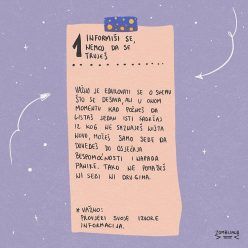 1 INFORMIŠI SE,
NEMOJ DA SE
TRUJEŠ
VAŽNO JE EDUKOVATI SE O SVEMU
ŠTO SE DEŠAVA, ALI U ONOM
MOMENTU KAD POČNEŠ DA
LISTAŠ JEDAN ISTI SADRŽAJ
IZ KOG NE SAZNAJEŠ NIŠTA
NOVO, MOŽEŠ SAMO SEBE DA
DOVEDEŠ DO OSJEĆAJA
BESPOMOĆNOSTI I NAPADA
PANIKE. TAKO NE POMAŽEŠ
NI SEBI NI DRUGIMA.
* VAŽNO:
PROVJERI SVOJE IZVORE
INFORMACIJA.